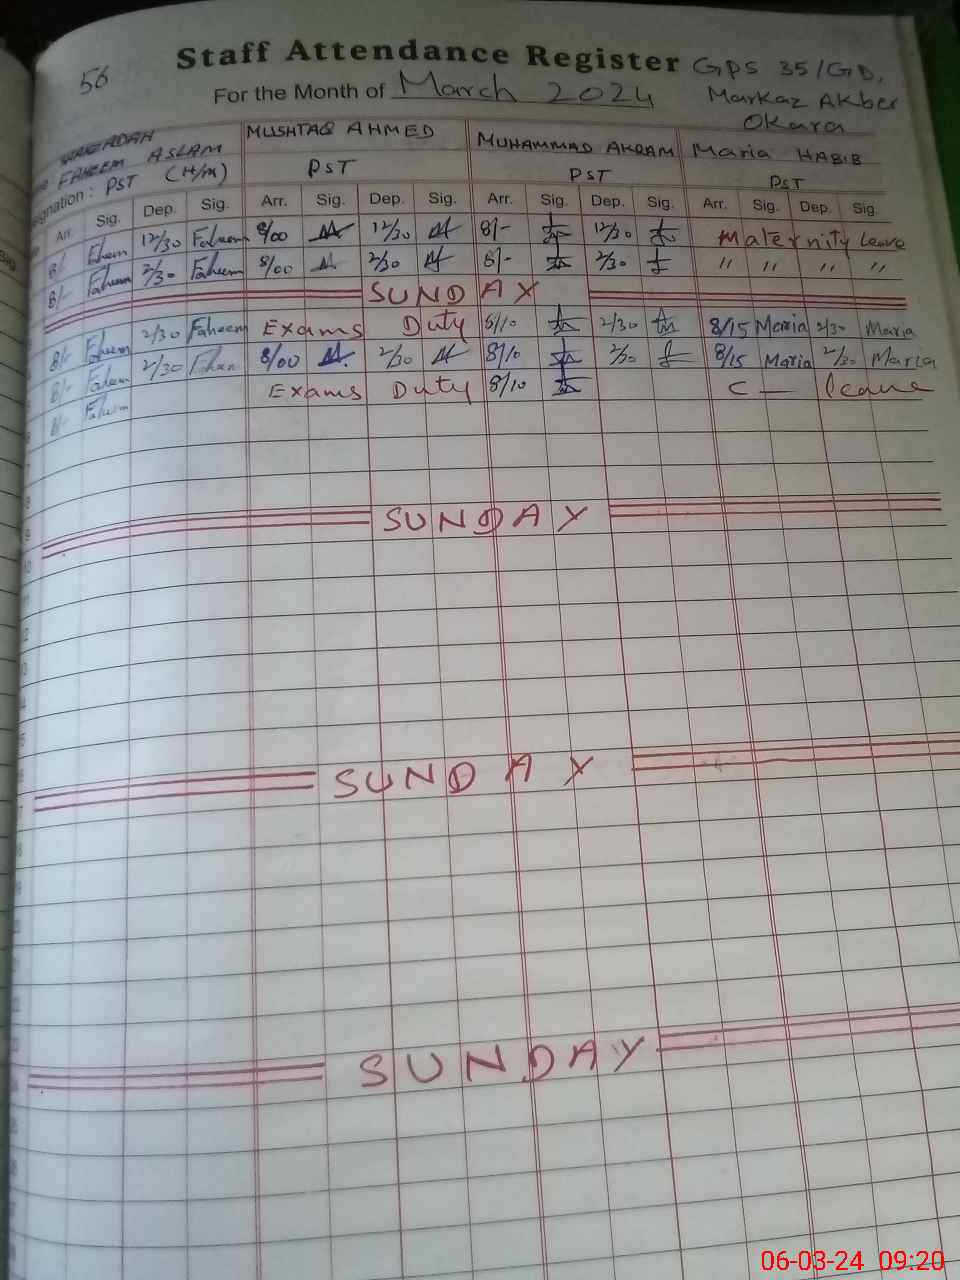 56
Staff Attendance Register GPS 35/GD,
For the Month of March 2024 Markaz Akber
Okara
FAHEEM ASLAM MUSHTAQ AHMED MUHAMMAD AKRAM Maria HABIB
PST (H/M) PST PST PST
Arr. Sig. Dep. Sig. Arr. Sig. Dep. Sig. Arr. Sig. Dep. Sig. Arr. Sig. Dep. Sig.
8/- 12/30 Faheem 8/00 12/30 8/- 12/30 Maternity Leave
8/- Faheem 2/30 Faheem 8/00 2/30 8/- 2/30 " " " "
SUNDAY
8/- Faheem 2/30 Faheem Exams Duty 8/10 2/30 8/15 Maria 2/30 Maria
8/- Faheem 2/30 8/00 2/30 8/10 2/30 8/15 Maria 2/30 Maria
8/- Exams Duty 8/10 C - leave
SUNDAY
SUNDAY
SUNDAY
06-03-24 09:20